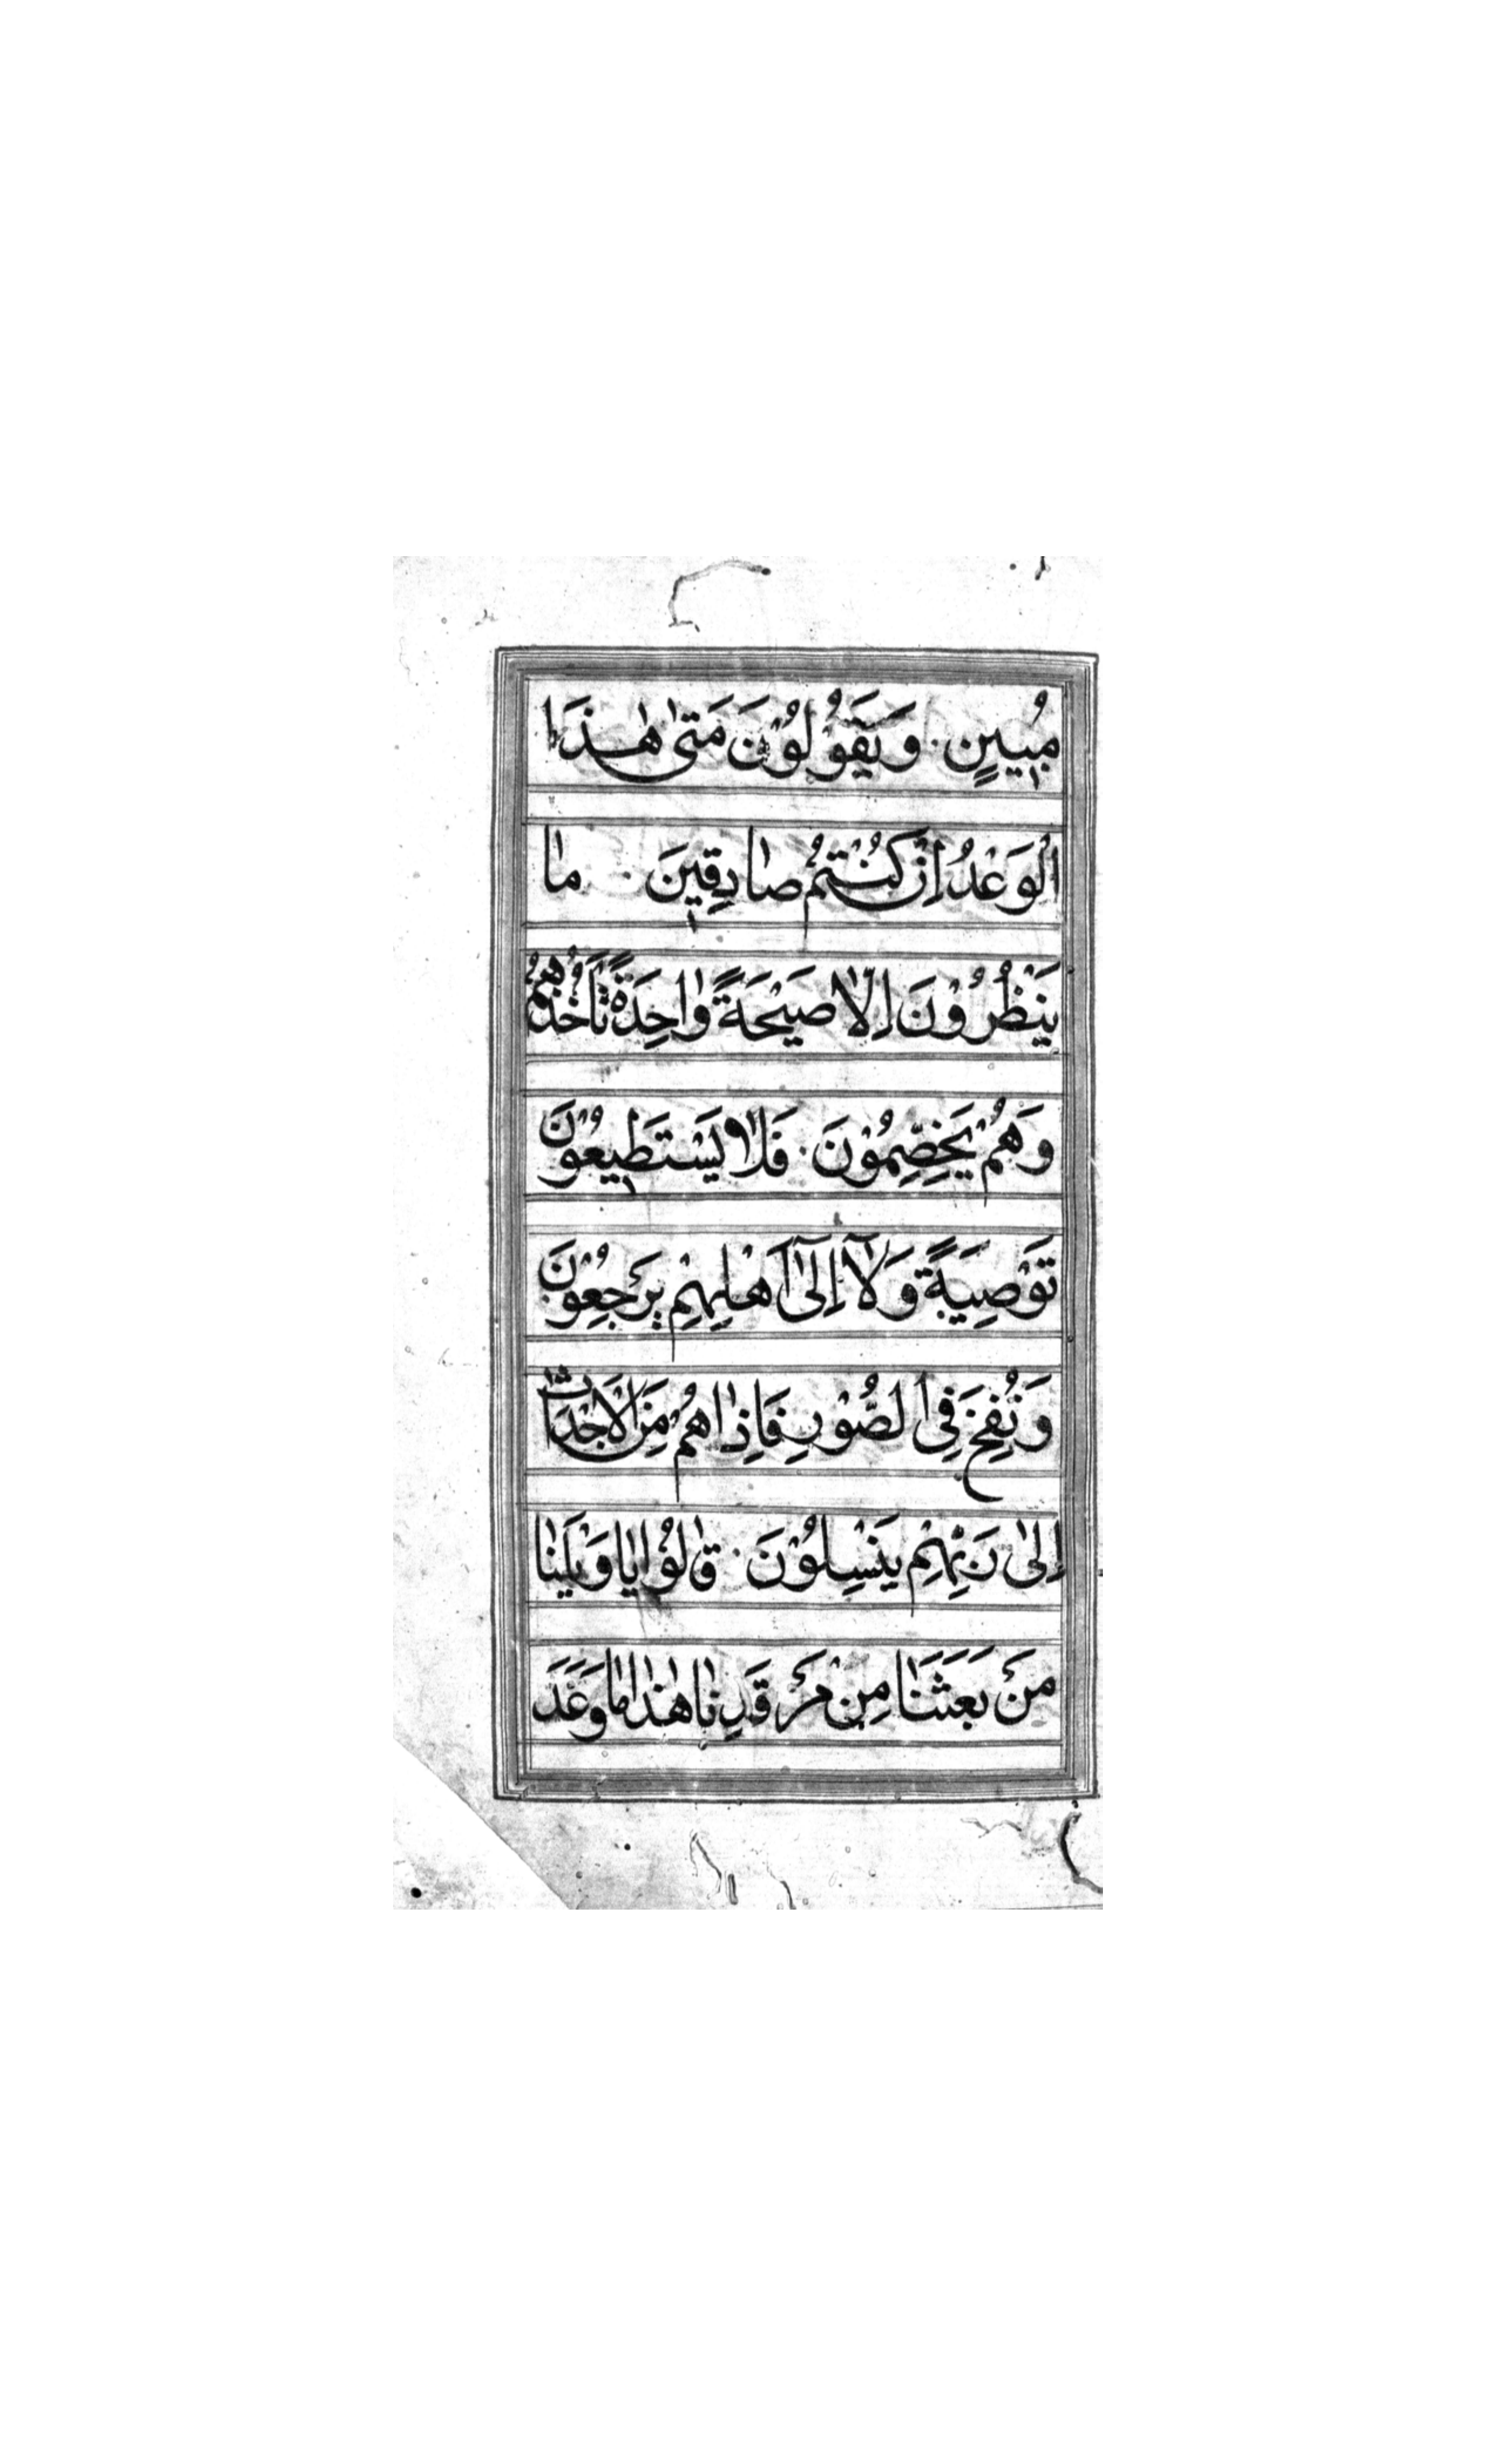 مُبٖينٍ وَيَقُولُوْنَ مَتىٰ هٰذَا
الْوَعْدُ اِنْ كُنْتُمْ صٰادِقٖينَ مٰا
يَنْظُرُوْنَ اِلّٰا صَيْحَةً وٰاحِدَةً تَأْخُذُهُمْ
وَهُمْ يَخِصِّمُوْنَ فَلٰا يَسْتَطٖيعُوْنَ
تَوْصِيَةً وَلٰٓا اِلىٰٓ اَهْلِهِمْ يَرْجِعُوْنَ
وَنُفِخَ فِى الصُّوْرِ فَاِذٰا هُمْ مِنَ الْاَجْدٰاثِ
اِلىٰ رَبِّهِمْ يَنْسِلُوْنَ قٰالُوْا يٰا وَيْلَنٰا
مَنْ بَعَثَنٰا مِنْ مَرْقَدِنٰا هٰذٰا مٰا وَعَدَ